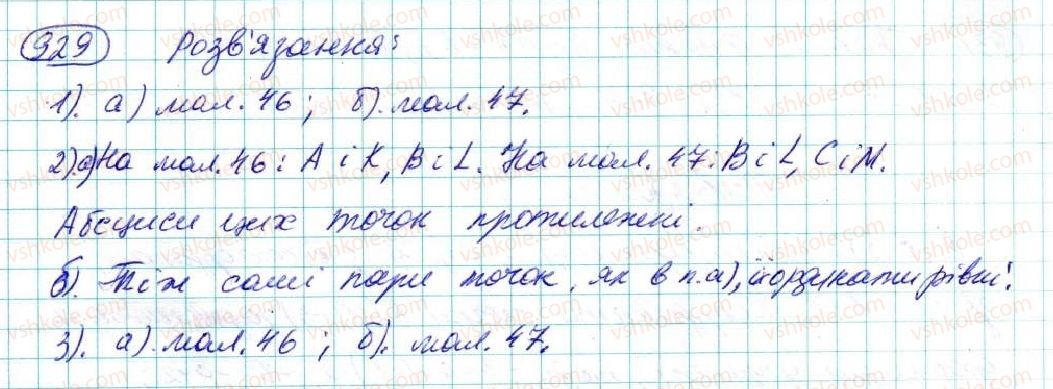 929 Розв'язання:
1). а) мал. 46; б). мал. 47.
2).а) На мал. 46: А і К, В і L. На мал. 47: В і L, С і М.
Абсциси цих точок протилежні.
б). Ті ж самі пари точок, як в п.а), її ординати рівні.
3). а). мал. 46; б). мал. 47.